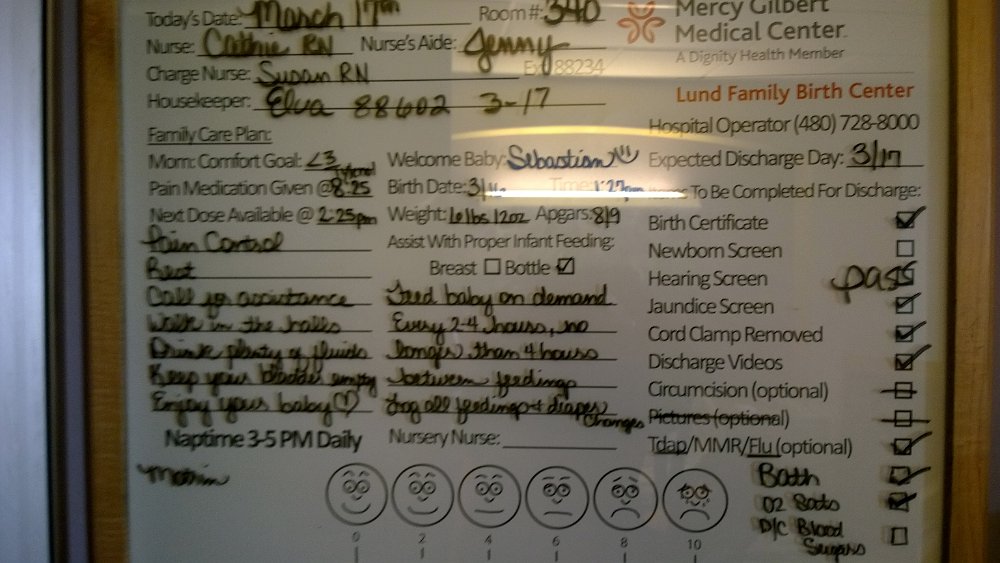 Today's Date: March 17th Room #: 340
Mercy Gilbert
Medical Center.
A Dignity Health Member
Nurse: Cathie RN Nurse's Aide: Jenny
Ext 88234
Charge Nurse: Susan RN
Housekeeper: Elva 88602 3-17
Lund Family Birth Center
Hospital Operator (480) 728-8000
Family Care Plan:
Mom: Comfort Goal: <3 Welcome Baby: Sebastian Expected Discharge Day: 3/17
Pain Medication Given @ 8:25 Birth Date: 3/16 Time: 1:27pm Items To Be Completed For Discharge:
Next Dose Available @ 2:25pm Weight: 6lbs 12oz Apgars: 8/9
Pain Control
Rest
Call for assistance
Walk in the halls
Drink plenty of fluids
Keep your bladder empty
Enjoy your baby ♡
Naptime 3-5 PM Daily
Motrin
Assist With Proper Infant Feeding:
Breast ☐ Bottle ☑
Feed baby on demand
Every 2-4 hours, no
longer than 4 hours
between feedings
Log all feedings + diaper
changes
Nursery Nurse:
Birth Certificate ☑
Newborn Screen ☐
Hearing Screen pass
Jaundice Screen ☑
Cord Clamp Removed ☑
Discharge Videos ☑
Circumcision (optional)
Pictures (optional)
Tdap/MMR/Flu (optional) ☑
Bath ☑
O2 Sats ☑
D/C Blood
Sugars ☐
0 2 4 6 8 10